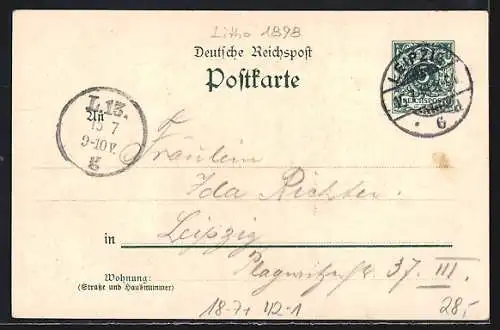 Litho 1898
Deutsche Reichspost
Postkarte
LEIPZIG
REICHSPOST
6
L. 13.
15 7
9-10 V.
g
An
Fräulein
Ida Richter
in Leipzig
Plagwitzerstr. 37. III.
Wohnung:
(Straße und Hausnummer)
18-7+ 42-1
28,-